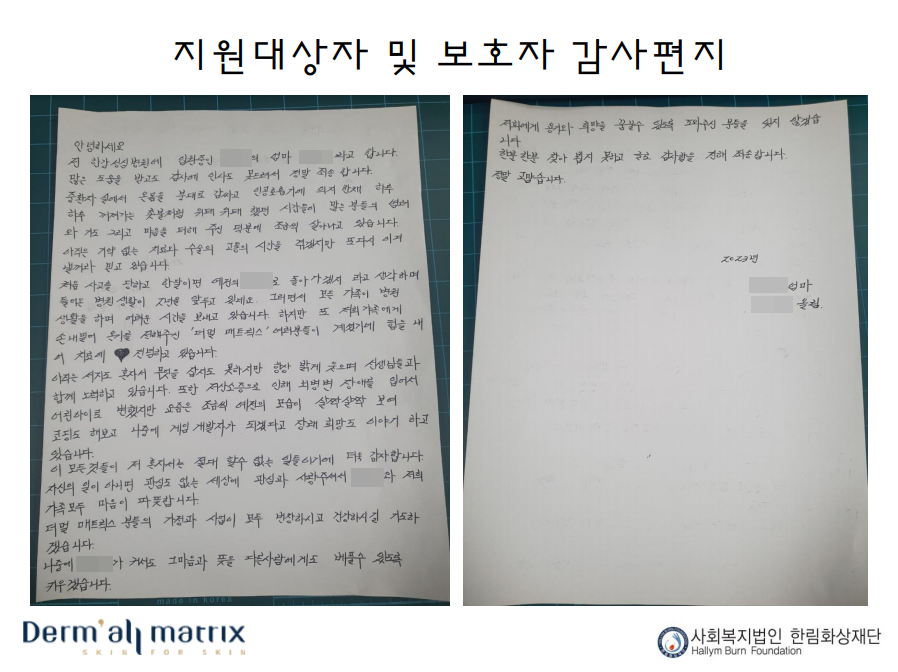 지원대상자 및 보호자 감사편지
안녕하세요
전 한강성심병원에 입원중인 의 엄마 라고 합니다.
많은 도움을 받고도 감사에 인사도 못드려서 정말 죄송합니다.
중환자실에서 온몸을 붕대로 감싸고 인공호흡기에 의지한채 하루
하루 꺼져가는 촛불처럼 위태위태 했던 시간들이 많은분들의 염려
와 기도 그리고 마음을 더해 주신 덕분에 조금씩 살아나고 있습니다.
아직은 기약 없는 치료와 수술의 고통의 시간을 겪겠지만 또다시 이겨
낼거라 믿고 있습니다.
처음 사고를 당하고 한달이면 예전의 로 돌아가겠지 라고 생각하며
들어온 병원생활이 2년을 앞두고 있네요. 그러면서 모든 가족이 병원
생활을 하며 어려운 시간을 보내고 있습니다. 하지만 또 저희가족에게
손내밀어 온기를 전해주신 '더멀 매트릭스' 여러분들이 계셨기에 힘을 내
어 치료에 전념하고 있습니다.
아직은 서지도 혼자서 무엇을 잡지도 못하지만 항상 밝게 웃으며 선생님들과
함께 노력하고 있습니다. 또한 저산소증으로 인해 뇌병변 장애를 입어서
어린아이로 변했지만 요즘은 조금씩 예전의 모습이 살짝살짝 보여
코딩도 해보고 나중에 게임개발자가 되겠다고 장래 희망도 이야기 하고
있습니다.
이 모든것들이 저 혼자서는 절대 할수 없는 일들이기에 더욱 감사합니다.
자신의 일이 아니면 관심도 없는 세상에 관심과 사랑주셔서 와 저희
가족모두 마음이 따뜻합니다.
더멀 매트릭스 분들의 가정과 사업이 모두 번창하시고 건강하시길 기도하
겠습니다.
나중에 가 커서도 그마음과 뜻을 다른사람에게도 베풀수 있도록
키우겠습니다.
저희에게 온기와 희망을 꿈꿀수 있도록 도와주신 분들을 잊지 않겠습
니다.
한분한분 찾아 뵙지 못하고 글로 감사함을 전해 죄송합니다.
정말 고맙습니다.
2023년
엄마
올림.
made in korea
Derm'all matrix
SKIN FOR SKIN
사회복지법인 한림화상재단
Hallym Burn Foundation